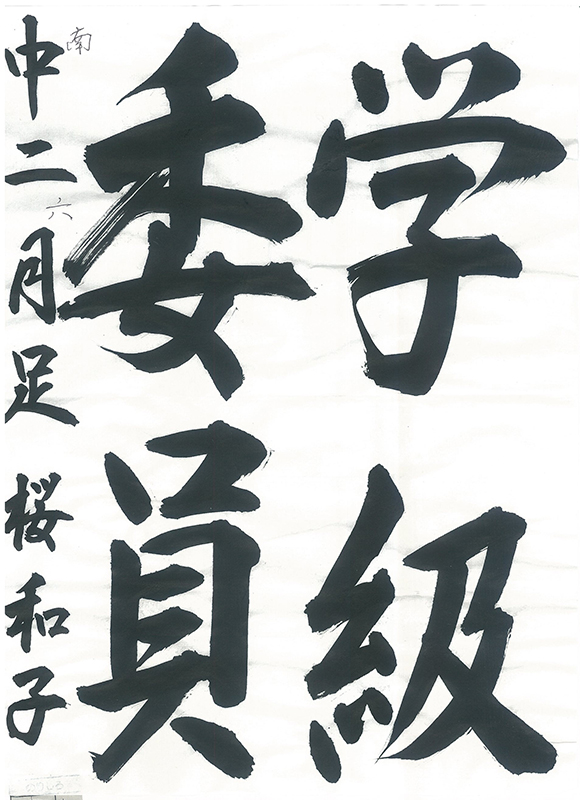 学級
委員
中二月足桜和子
南
六